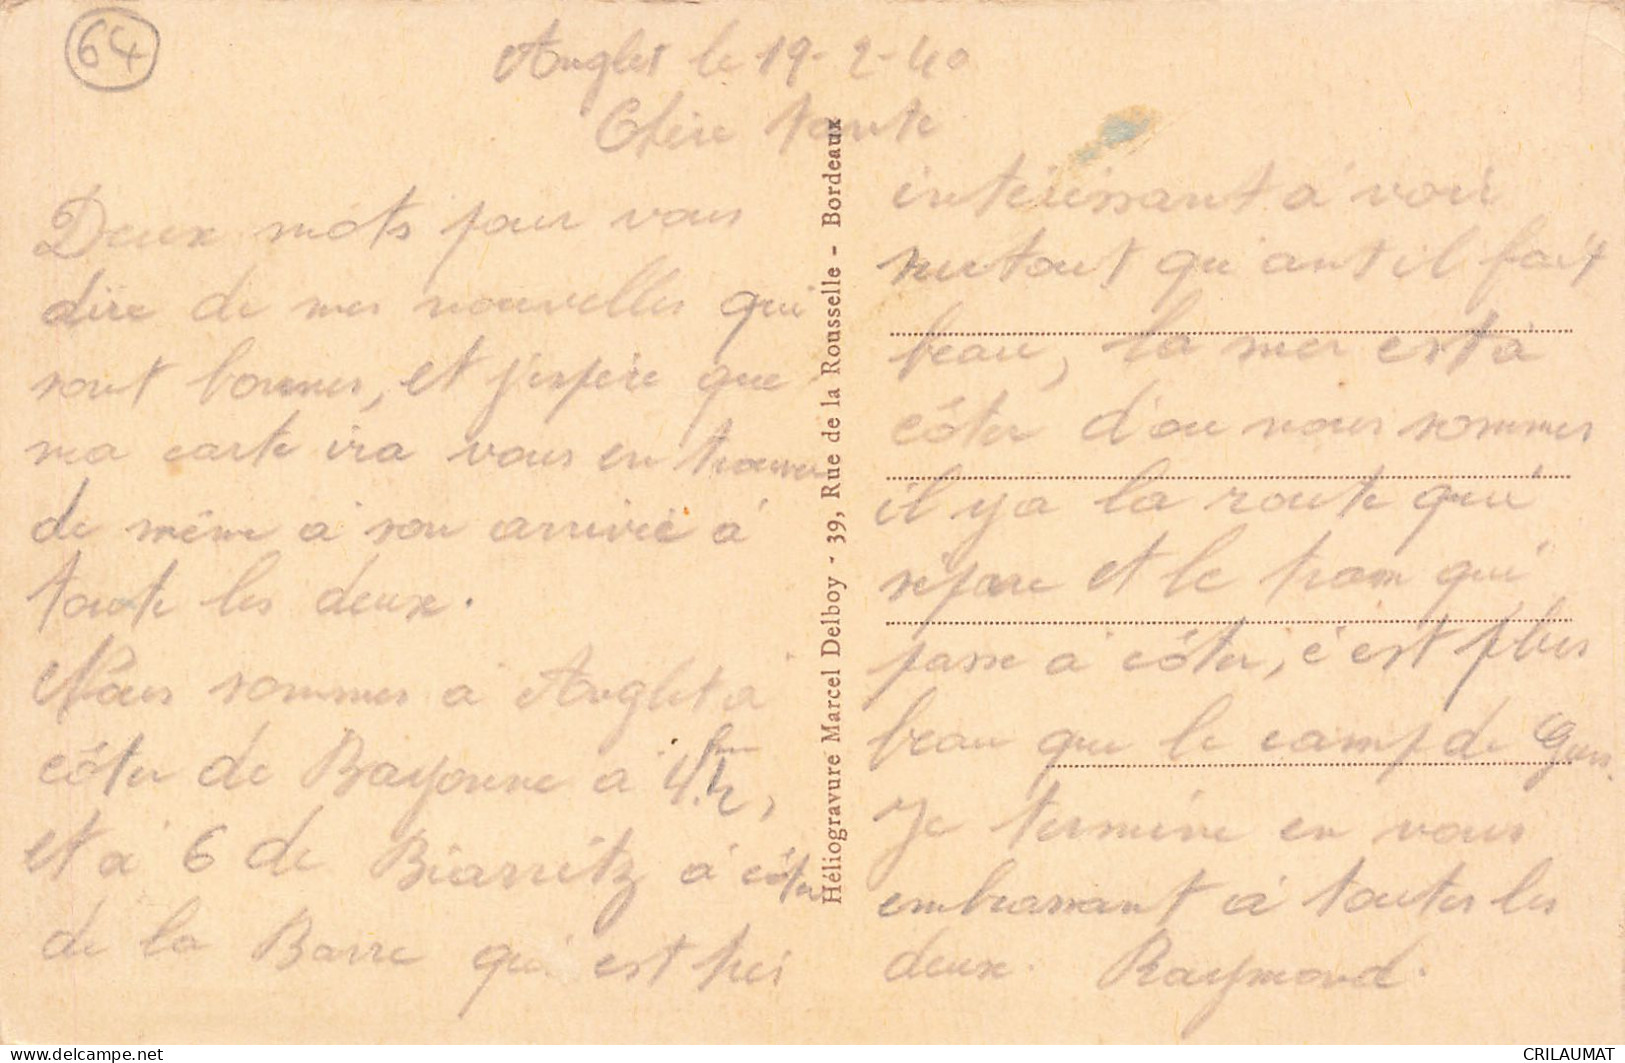 64
Anglet le 19-2-40
Chère tante
Deux mots pour vous
dire de mes nouvelles qui
sont bonnes, et j'espère que
ma carte ira vous en trouver
de même a son arrivée à
toute les deux.
Nous sommes a Anglet a
côter de Bayonne a 4 km ½,
et a 6 de Biarritz a côter
de la Barre qui est trés
intéressant a voir
surtout qu'ant il fait
beau, la mer est à
côter d'ou nous sommes
il y a la route qui
sépare et le tram qui
passe a côter, c'est plus
beau que le camp de Gurs.
Je termine en vous
embrassant a toutes les
deux. Raymond.
Héliogravure Marcel Delboy - 39, Rue de la Rousselle - Bordeaux
www.delcampe.net
CRILAUMAT